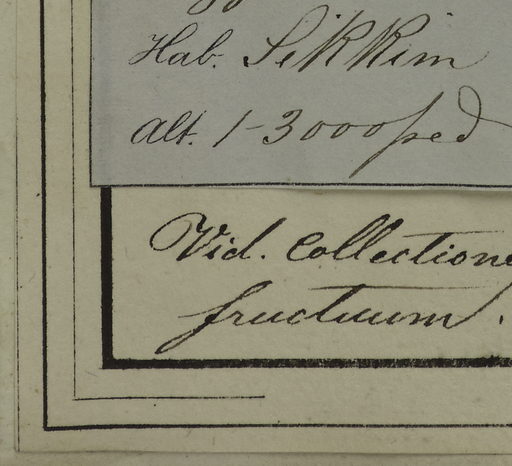 Hab. Sikkim
Alt. 1-3000 ped
Vid. Collectione
fructuum.